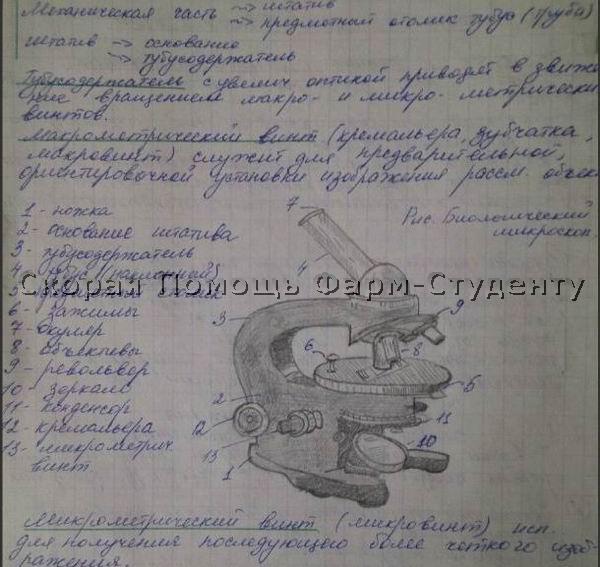 Механическая часть → штатив
→ предметный столик тубус (труба)
штатив → основание
→ тубусодержатель
Тубусодержатель с увелич оптикой приводят в движе
ние вращением макро- и микро- метрически
винтов.
Макрометрический винт (кремальера, зубчатка,
макровинт) служит для предварительной,
ориентировочной установки изображения рассм. объек
1 - ножка
2 - основание штатива
3 - тубусодержатель
4 - тубус (наклонный)
5 - предметный столик
6 - зажимы
7 - окуляр
8 - объективы
9 - револьвер
10 - зеркало
11 - конденсор
12 - кремальера
13 - микрометрич
винт
Рис. Биологический
микроскоп.
7
4
3
9
6
8
5
2
11
12
10
13
1
Скорая Помощь Фарм-Студенту
Микрометрический винт (микровинт) исп.
для получения последующего более четкого изоб-
ражения.